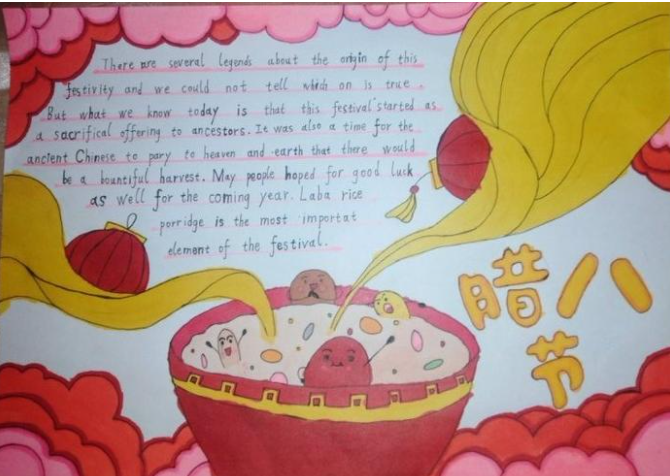 There are several legends about the origin of this
festivity and we could not tell which on is true.
But what we know today is that this festival started as
a sacrifical offering to ancestors. It was also a time for the
ancient Chinese to pary to heaven and earth that there would
be a bountiful harvest. May people hoped for good luck
as well for the coming year. Laba rice
porridge is the most importat
element of the festival.
腊八
节